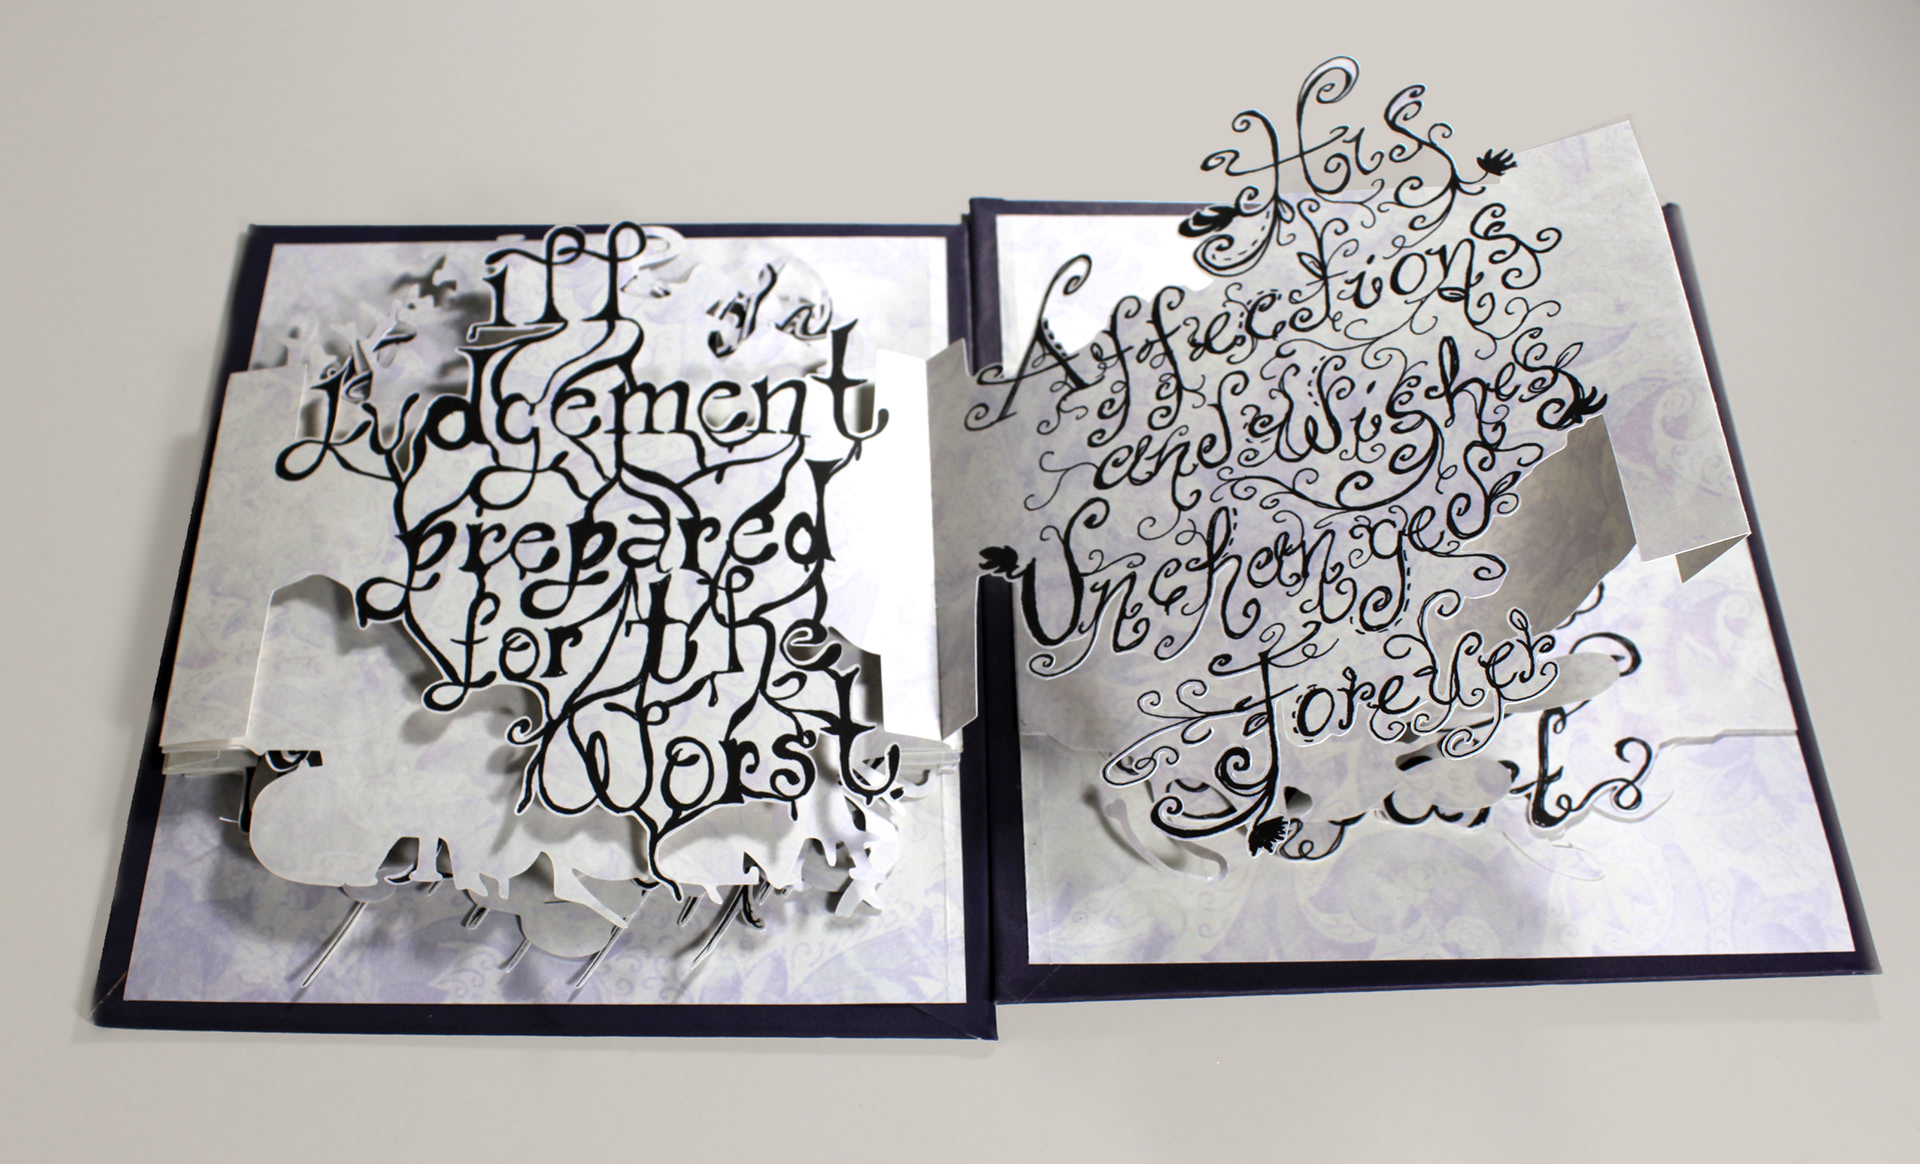 iff
Judgement
prepared
for the
Worst.
His
Affections
and Wishes
Unchanged
forever